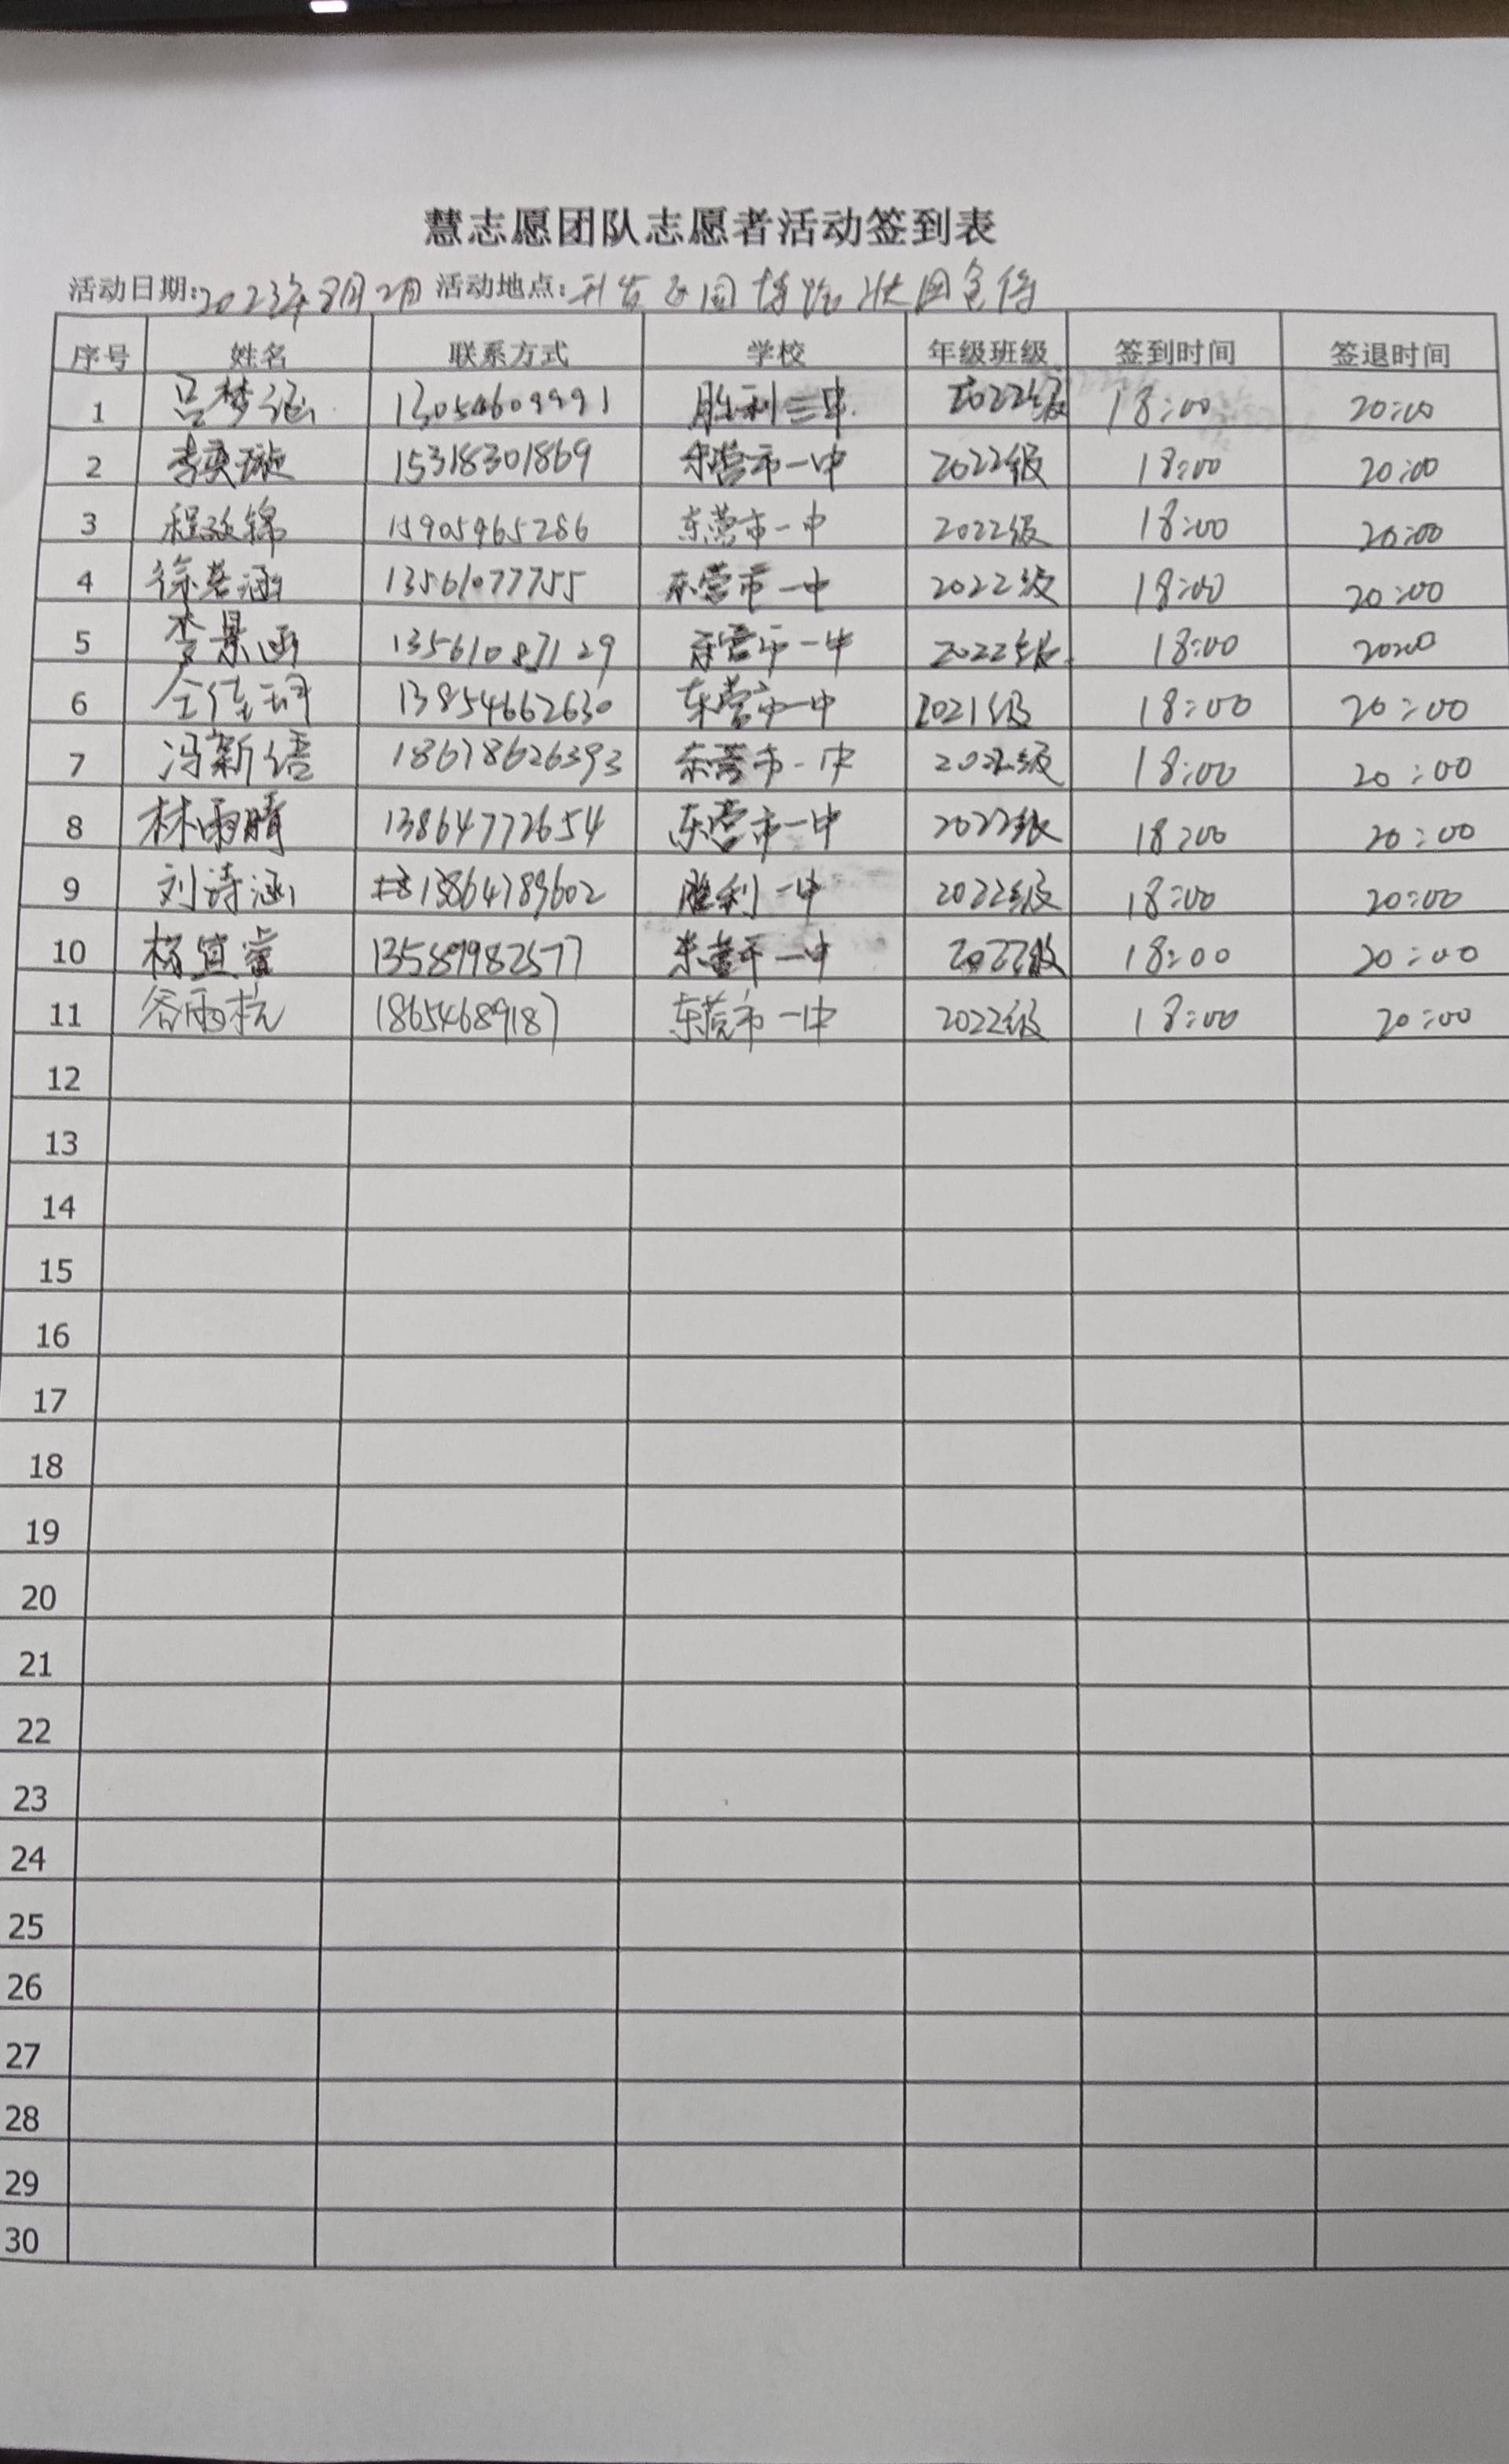 慧志愿团队志愿者活动签到表
活动日期:2023年8月2日 活动地点:
序号 姓名 联系方式 学校 年级班级 签到时间 签退时间
1 吕梦涵 13054609991 胜利三中 2022级 18:00 20:00
2 李奕璇 15318301869 东营市一中 2022级 18:00 20:00
3 15905465286 东营市一中 2022级 18:00 20:00
4 徐若涵 13561077755 东营市一中 2022级 18:00 20:00
5 李景涵 13561087129 东营市一中 2022级 18:00 20:00
6 仝佳珂 13854662630 东营市一中 2021级 18:00 20:00
7 冯新语 18678626393 东营市一中 18:00 20:00
8 林雨晴 13864772654 东营市一中 2022级 18:00 20:00
9 刘诗涵 13864789602 胜利一中 2022级 18:00 20:00
10 杨宜睿 13589982577 东营市一中 2022级 18:00 20:00
11 谷雨杭 18654689187 东营市一中 2022级 18:00 20:00
12
13
14
15
16
17
18
19
20
21
22
23
24
25
26
27
28
29
30